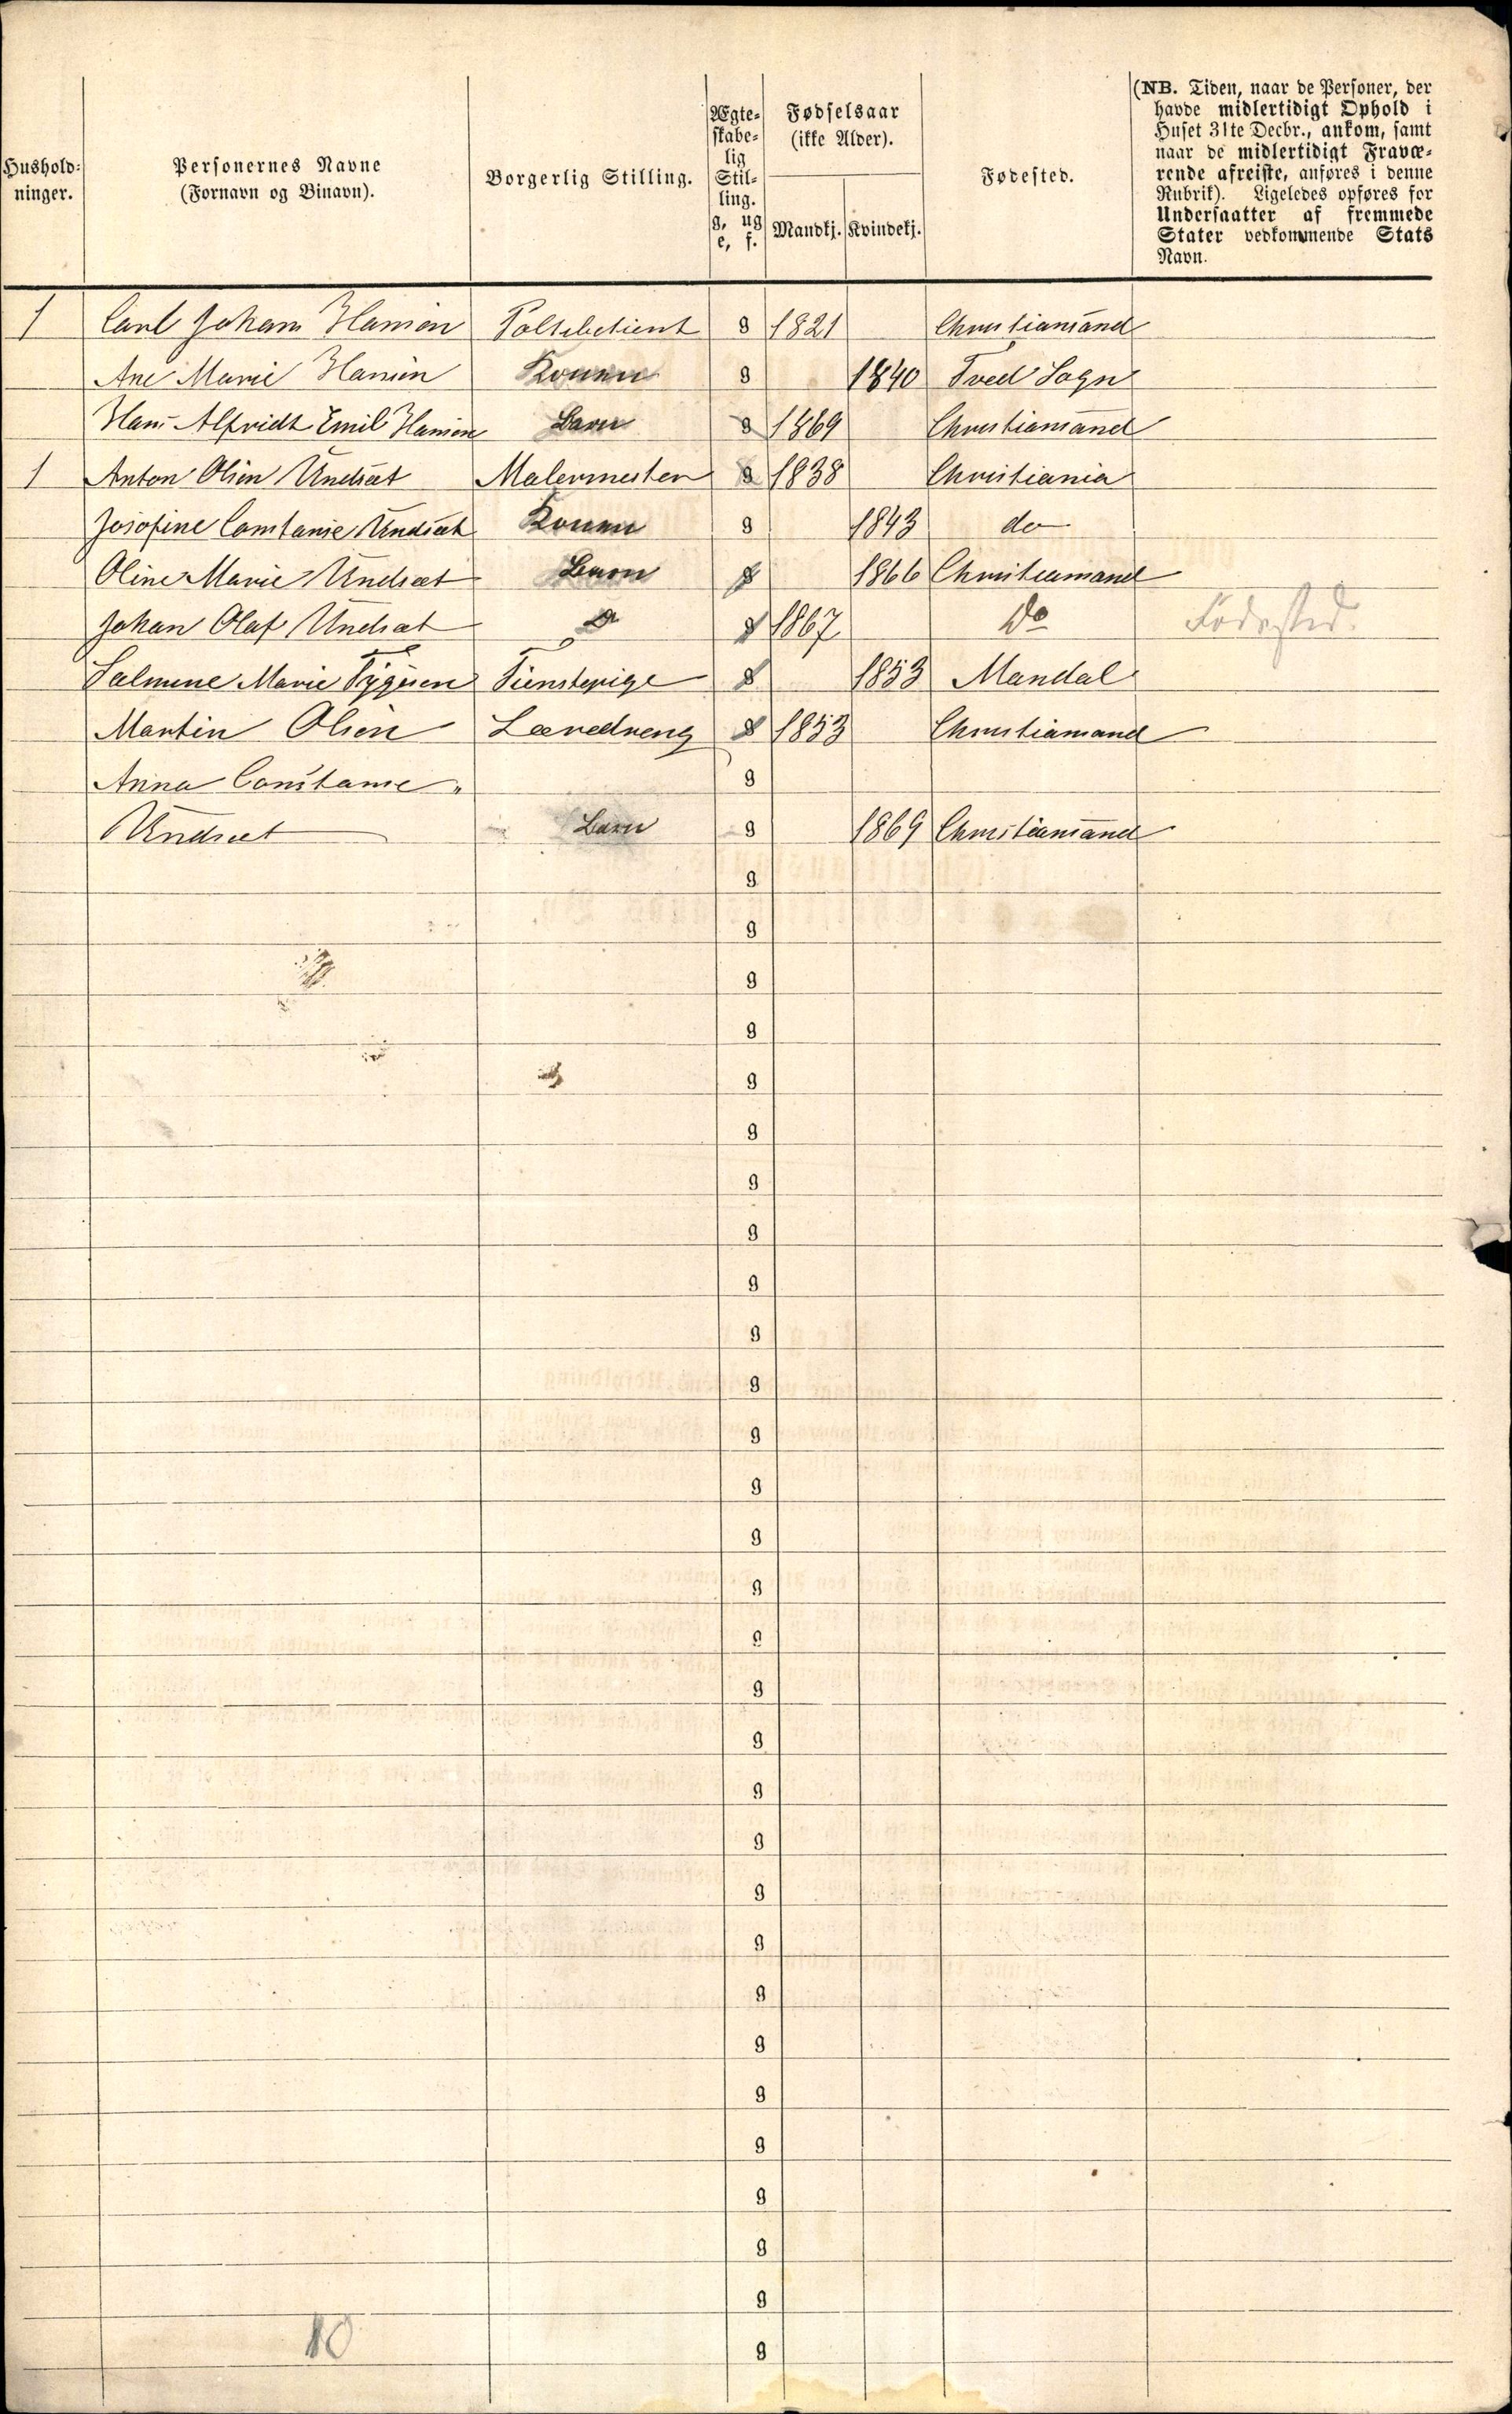 Hushold-
ninger.
Personernes Navne
(Fornavn og Binavn).
Borgerlig Stilling.
Ægte-
skabe-
lig
Stil-
ling.
g, ug
e, f.
Fødselsaar
(ikke Alder).
Mandkj. Kvindekj.
Fødested.
(NB. Tiden, naar de Personer, der
havde midlertidigt Ophold i
Huset 31te Decbr., ankom, samt
naar de midlertidigt Fravæ-
rende afreiste, anføres i denne
Rubrik). Ligeledes opføres for
Undersaatter af fremmede
Stater vedkommende Stats
Navn.
1 Carl Johan Hansen Poltibetient g 1821 Christiansand
Ane Marie Hansen Konen g 1840 Tved Sogn
Hans Alfridt Emil Hansen Barn g 1869 Christiansand
1 Anton Olsen Undsæt Malermester g 1838 Christiania
Josofine Constanse Undsæt Konen g 1843 do
Oline Marie Undsæt Barn g 1866 Christiansand
Johan Olaf Undsæt Do g 1867 Do Fødested.
Salmine Marie Tygesen Tienstepige g 1853 Mandal
Martin Olsen Læredreng g 1853 Christiansand
Anna Constanse „ g
Undsæt Barn g 1869 Christiansand
g
g
g
g
g
g
g
g
g
g
g
g
g
g
g
g
g
g
g
g
g
g
g
g
g
g
g
g
g
10 g